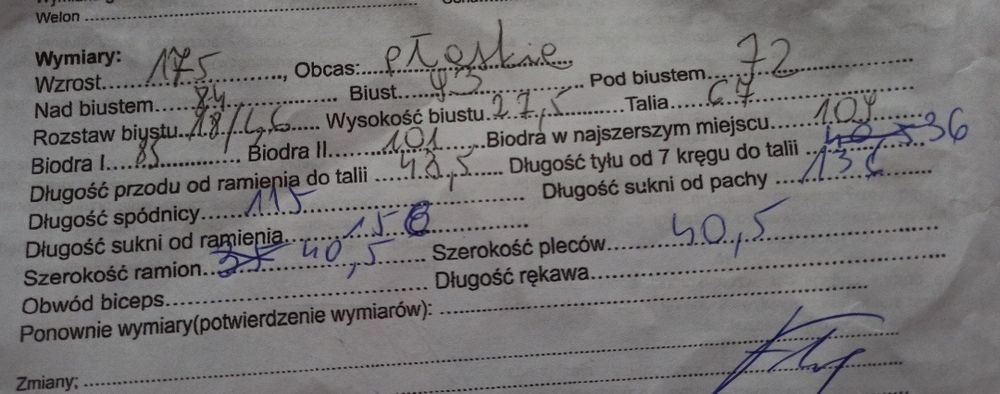 Welon
Wymiary:
Wzrost 175, Obcas: płaskie
Nad biustem 84 Biust 93 Pod biustem 72
Rozstaw biustu 18/ Wysokość biustu 27,5 Talia 67
Biodra I 85 Biodra II 101 Biodra w najszerszym miejscu 109
Długość przodu od ramienia do talii 43,5 Długość tyłu od 7 kręgu do talii 36
Długość spódnicy 115 Długość sukni od pachy
Długość sukni od ramienia 156
Szerokość ramion 40,5 Szerokość pleców 40,5
Obwód biceps Długość rękawa
Ponownie wymiary(potwierdzenie wymiarów):
Zmiany: